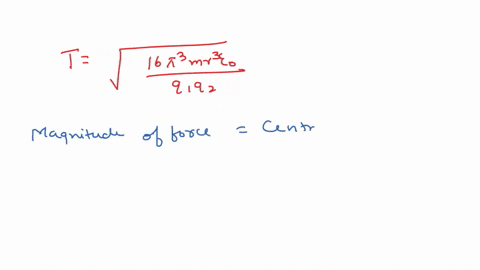 T = √(16π³mr³ε₀ / q₁q₂)
Magnitude of force = Centr